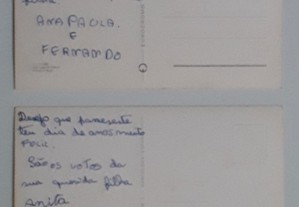 ANA PAULA.
E
FERNANDO
Desejo que passes este
teu dia de aniversário
FELIZ.
São os votos da
sua querida filha
Anita